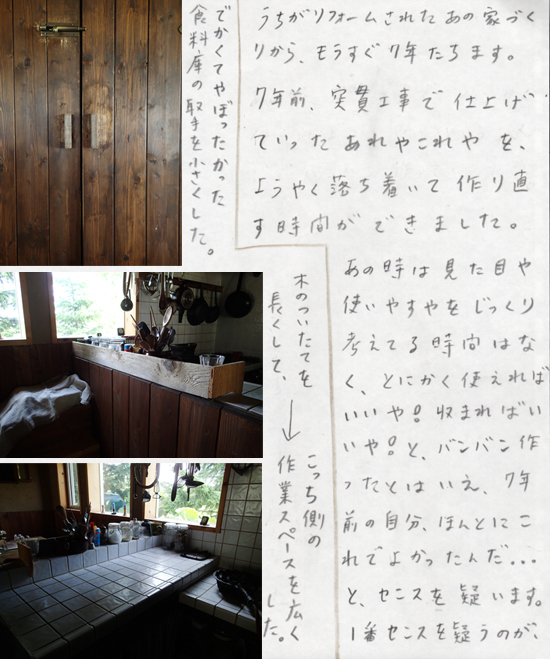 うちがリフォームされたあの家づく
りから、もうすぐ7年たちます。
7年前、突貫工事で仕上げ
ていったあれやこれやを、
ようやく落ち着いて作り直
す時間ができました。
あの時は見た目や
使いやすさをじっくり
考えてる時間はな
く、とにかく使えれば
いいや！収まればい
いや！と、バンバン作
ったとはいえ、7年
前の自分、ほんとにこ
れでよかったんだ...
と、センスを疑います。
1番センスを疑うのが、
でかくてやぼったかった
食料庫の取手を小さくした。
木のついたてを
長くして、
→
こっち側の
作業スペースを広く
した。